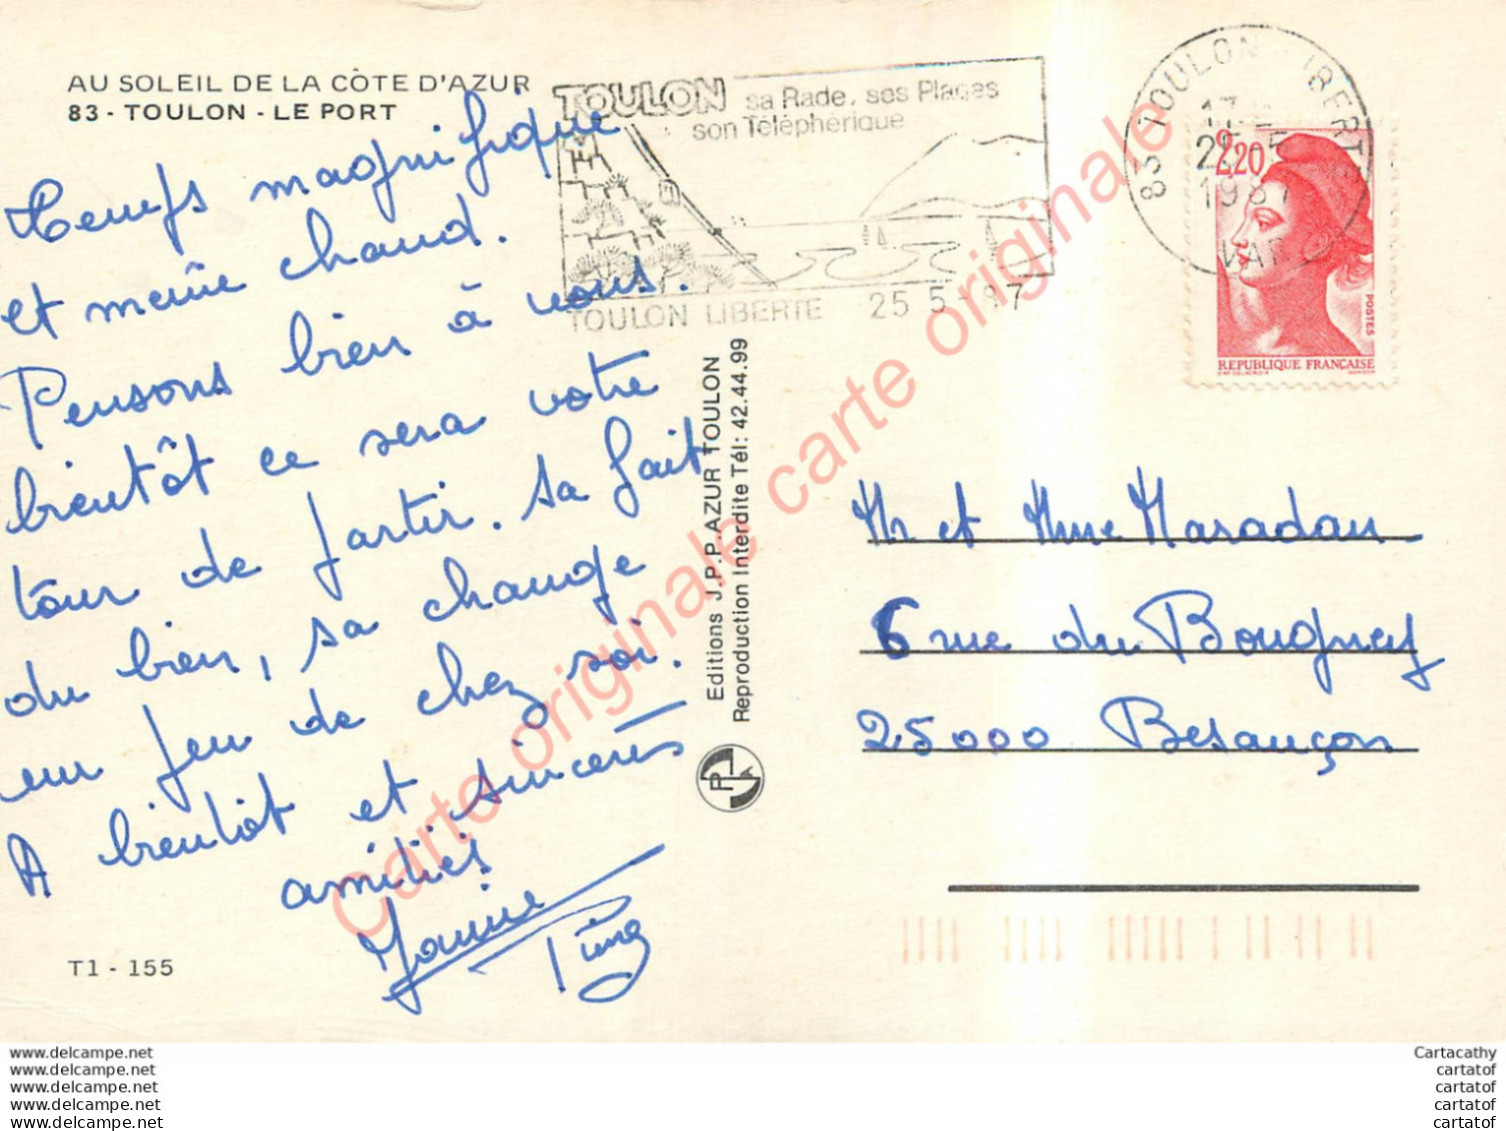 AU SOLEIL DE LA CÔTE D'AZUR
83 - TOULON - LE PORT
Temps magnifique
et même chaud.
Pensons bien à vous.
bientôt ce sera votre
tour de partir. sa fait
du bien, sa change
un peu de chez soi.
A bientôt et sincères
amitiés
T1 - 155
TOULON sa Rade, ses Plages
son Téléphérique
TOULON LIBERTE 25 5 - 87
83 TOULON LIBERTE
1987
VAR
2,20
POSTES
REPUBLIQUE FRANÇAISE
Editions J.P.P. AZUR TOULON
Reproduction Interdite Tél: 42.44.99
Mr et Mme Maradan
6 rue du Bougney
25000 Besançon
Carte originale carte originale
www.delcampe.net
www.delcampe.net
www.delcampe.net
www.delcampe.net
www.delcampe.net
Cartacathy
cartatof
cartatof
cartatof
cartatof